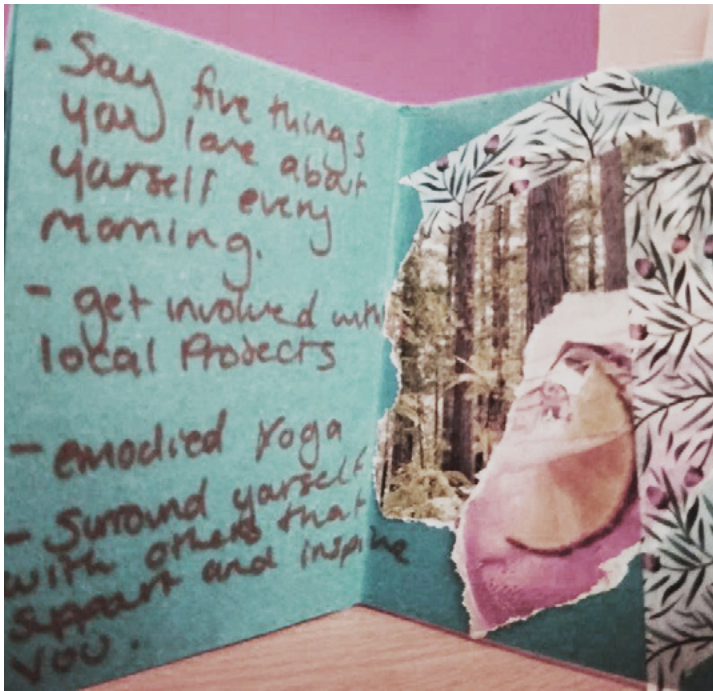 - Say five things
you love about
yourself every
morning.
- get involved with
local Projects
- emodied Yoga
- Surround yourself
with others that
support and inspire
you.